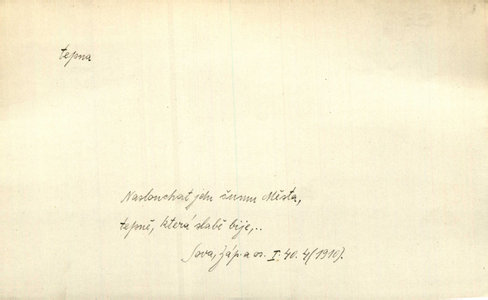 tepna
Naslouchat jeho šumu Města,
tepně, která slabě bije,..
Sova, Záp a os. I. 40. 4 (1910).